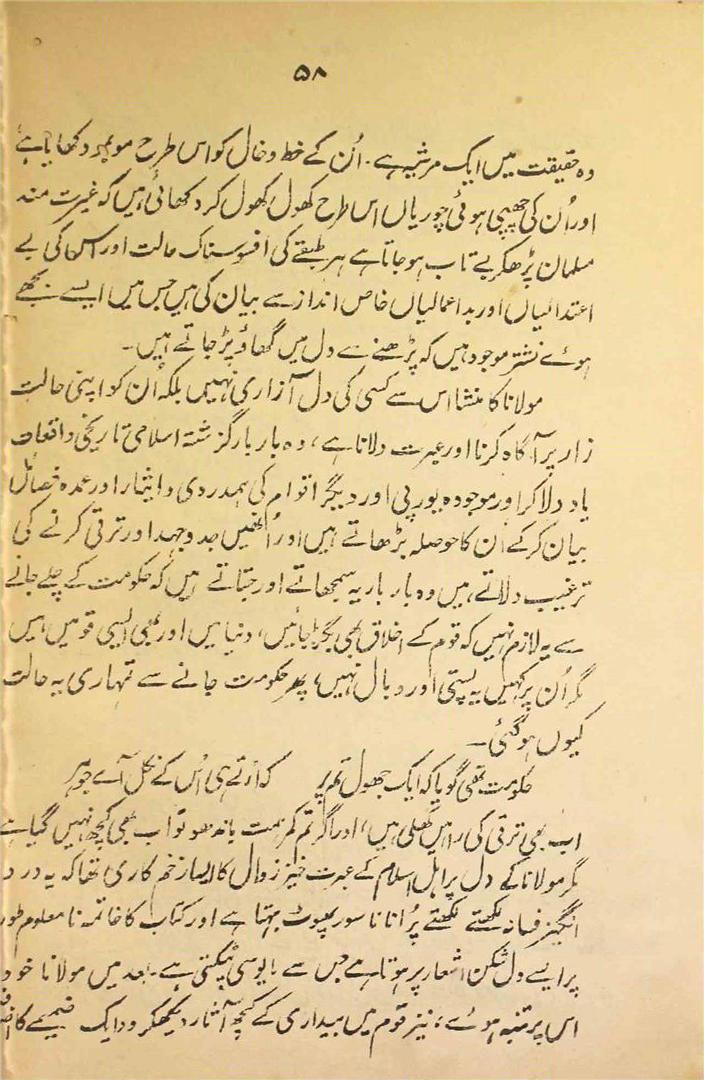 ۵۸
وہ حقیقت میں ایک مرثیہ ہے۔ اُن کے خط و خال کو اس طرح موبمو دکھایا ہے
اور اُن کی چھپی ہوئی چوریاں اس طرح کھول کھول کر دکھائی ہیں کہ غیرت مند
مسلمان پڑھکر بے تاب ہو جاتا ہے ہر طبقے کی افسوسناک حالت اور اس کی بے
اعتدالیاں اور بداعمالیاں خاص انداز سے بیان کی ہیں جس میں ایسے بجھے
ہوئے نشتر موجود ہیں کہ پڑھنے سے دل میں گھاؤ پڑ جاتے ہیں۔
مولانا کا منشا اس سے کسی کی دل آزاری نہیں بلکہ اُن کو اپنی حالت
زار پر آگاہ کرنا اور عبرت دلانا ہے، وہ بار بار گزشتہ اسلامی تاریخی واقعات
یاد دلا کر اور موجودہ یورپی اور دیگر اقوام کی ہمدردی و ایثار اور عمدہ خصائل
بیان کرکے اُن کا حوصلہ بڑھاتے ہیں اور اُنھیں جدوجہد اور ترقی کرنے کی
ترغیب دلاتے ہیں وہ بار بار یہ سمجھاتے اور جتاتے ہیں کہ حکومت کے چلے جانے
سے یہ لازم نہیں کہ قوم کے اخلاق بھی بگڑ جائیں، دنیا میں اور بھی ایسی قومیں ہیں
مگر اُن پر کہیں یہ پستی اور وبال نہیں، پھر حکومت جانے سے تمہاری یہ حالت
کیوں ہو گئی۔
حکومت تھی گویا کہ ایک جھول تم پر کہ اڑتے ہی اُس کے نکل آئے جوہر
اب بھی ترقی کی راہیں کھلی ہیں، اور اگر تم کمر ہمت باندھو تو اب بھی کچھ نہیں گیا ہے
مگر مولانا کے دل پر اہل اسلام کے عبرت خیز زوال کا ایسا زخم کاری تھا کہ یہ درد
انگیز فسانہ لکھتے لکھتے پُرانا ناسور پھوٹ بہتا ہے اور کتاب کا خاتمہ نامعلوم طور
پر ایسے دل شکن اشعار پر ہوتا ہے جس سے مایوسی ٹپکتی ہے۔ بعد میں مولانا خود
اس پر متنبہ ہوئے، نیز قوم میں بیداری کے کچھ آثار دیکھکر وہ ایک ضمیمے کا